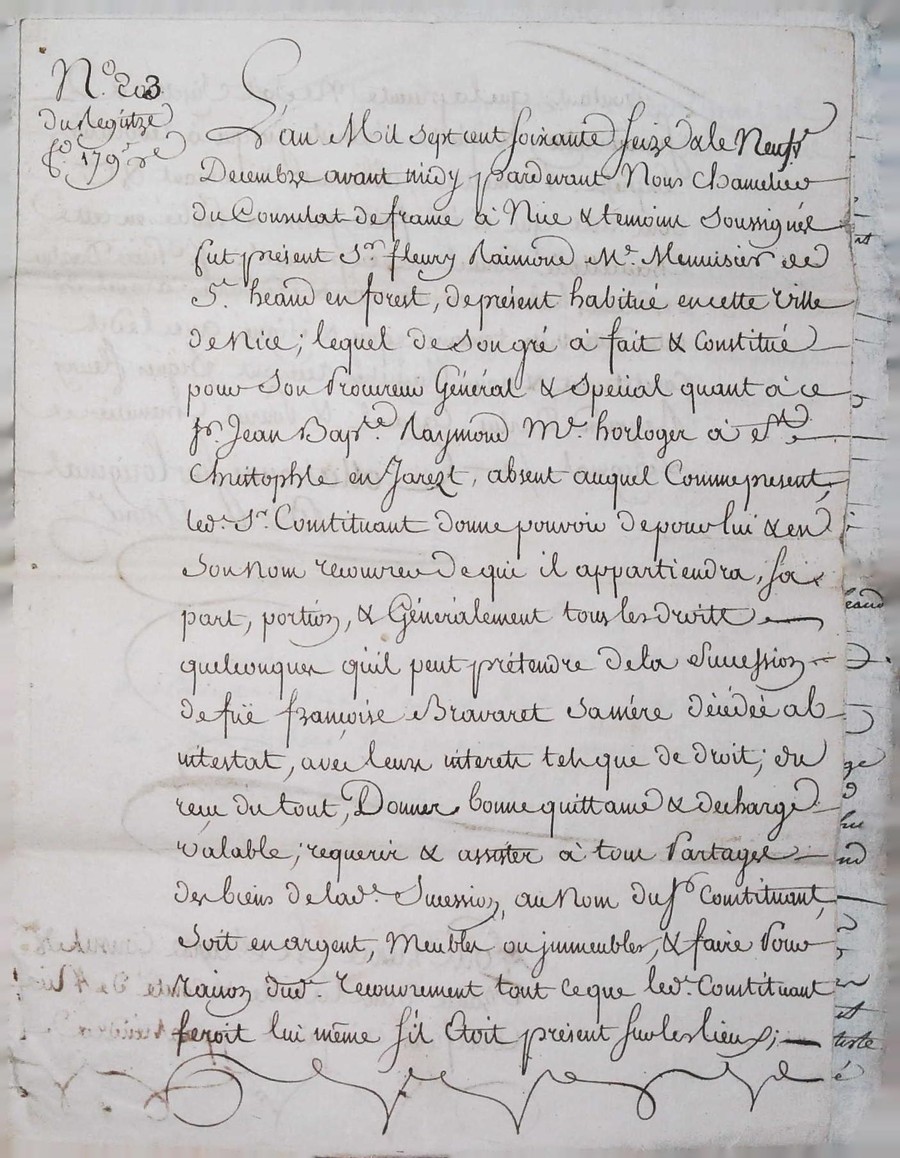 N.º 203
du Registre
f.º 179 rº
L'an Mil sept cent soixante seize & le Neuf
Decembre avant midy pardevant Nous Chancelier
du Consulat de france à Nice & temoins soussignés
fut présent Sr. fleury Raimond Me. Menuisier de
St. heand en forest, de présent habitué en cette ville
de Nice; lequel de son gré à fait & Constitué
pour son Procureur Général & Spécial quant à ce
Sr. Jean Bapte. Raymond Me. horloger à St.
Christophle en Jarezt, absent auquel Comme présent,
led. Sr. Constituant donne pouvoir de pour lui & en
son nom recouvrer de qui il appartiendra, sa
part, portion, & Généralement tous les droits
quelconques qu'il peut prétendre de la Succession
de füe françoise Bravaret sa mére décédée ab
intestat, avec leurs interets tels que de droit; du
reçu du tout, Donner bonne quittance & decharge
valable; requerir & assister à tous Partages
des biens de lade. Sucession, au Nom du Sr. Constituant,
soit en argent, Meubles ou jmmeubles, & faire Pour
raison dud. recouvrement tout ce que led. Constituant
feroit lui même s'il étoit présent sur les lieux;